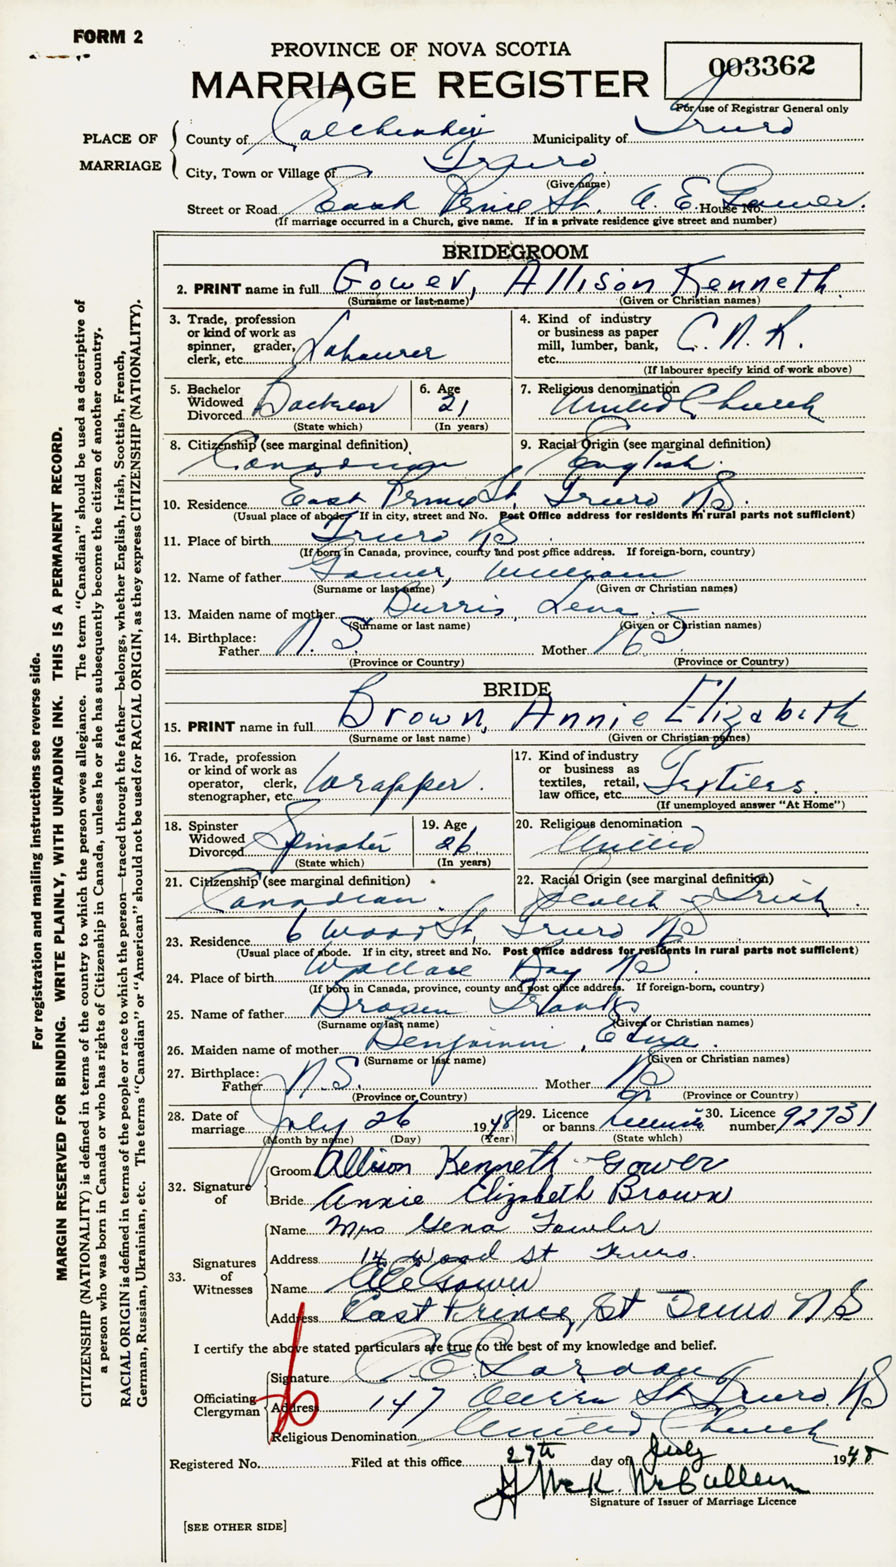 FORM 2
PROVINCE OF NOVA SCOTIA
MARRIAGE REGISTER
003362
For use of Registrar General only
PLACE OF MARRIAGE
County of Colchester Municipality of Truro
City, Town or Village of Truro
(Give name)
Street or Road East Prince St. A. E. Gower. House No.
(If marriage occurred in a Church, give name. If in a private residence give street and number)
BRIDEGROOM
2. PRINT name in full Gower, Allison Kenneth
(Surname or last name) (Given or Christian names)
3. Trade, profession or kind of work as spinner, grader, clerk, etc. Labourer
4. Kind of industry or business as paper mill, lumber, bank, etc. C.N.R.
(If labourer specify kind of work above)
5. Bachelor Widowed Divorced Bachelor
(State which)
6. Age 21
(In years)
7. Religious denomination United Church
8. Citizenship (see marginal definition) Canadian
9. Racial Origin (see marginal definition) English
10. Residence East Prince St, Truro NS.
(Usual place of abode. If in city, street and No. Post Office address for residents in rural parts not sufficient)
11. Place of birth Truro NS
(If born in Canada, province, county and post office address. If foreign-born, country)
12. Name of father Gower, William
(Surname or last name) (Given or Christian names)
13. Maiden name of mother Burris, Lena
(Surname or last name) (Given or Christian names)
14. Birthplace: Father N.S. Mother NS
(Province or Country) (Province or Country)
BRIDE
15. PRINT name in full Brown, Annie Elizabeth
(Surname or last name) (Given or Christian names)
16. Trade, profession or kind of work as operator, clerk, stenographer, etc. Wrapper.
17. Kind of industry or business as textiles, retail, law office, etc. Textiles.
(If unemployed answer "At Home")
18. Spinster Widowed Divorced Spinster
(State which)
19. Age 26
(In years)
20. Religious denomination United
21. Citizenship (see marginal definition) Canadian
22. Racial Origin (see marginal definition) Scotch & Irish
23. Residence 6 Wood St, Truro NS
(Usual place of abode. If in city, street and No. Post Office address for residents in rural parts not sufficient)
24. Place of birth Wallace Bay NS
(If born in Canada, province, county and post office address. If foreign-born, country)
25. Name of father Brown Frank
(Surname or last name) (Given or Christian names)
26. Maiden name of mother Benjamin, Edna.
(Surname or last name) (Given or Christian names)
27. Birthplace: Father N.S. Mother NS
(Province or Country) (Province or Country)
28. Date of marriage July 26 1948
(Month by name) (Day) (Year)
29. Licence or banns License
(State which)
30. Licence number 92731
32. Signature of
Groom Allison Kenneth Gower
Bride Annie Elizabeth Brown
33. Signatures of Witnesses
Name Mrs Gena Fowler
Address 14 Wood St Truro.
Name A E Gower
Address East Prince, St Truro N S
I certify the above stated particulars are true to the best of my knowledge and belief.
Officiating Clergyman
Signature
Address 147 Queen St Truro NS
Religious Denomination United Church
Registered No. Filed at this office 27th day of July 1948
Signature of Issuer of Marriage Licence
[SEE OTHER SIDE]
For registration and mailing instructions see reverse side.
MARGIN RESERVED FOR BINDING. WRITE PLAINLY, WITH UNFADING INK. THIS IS A PERMANENT RECORD.
CITIZENSHIP (NATIONALITY) is defined in terms of the country to which the person owes allegiance. The term "Canadian" should be used as descriptive of
a person who was born in Canada or who has rights of Citizenship in Canada, unless he or she has subsequently become the citizen of another country.
RACIAL ORIGIN is defined in terms of the people or race to which the person—traced through the father—belongs, whether English, Irish, Scottish, French,
German, Russian, Ukrainian, etc. The terms "Canadian" or "American" should not be used for RACIAL ORIGIN, as they express CITIZENSHIP (NATIONALITY).